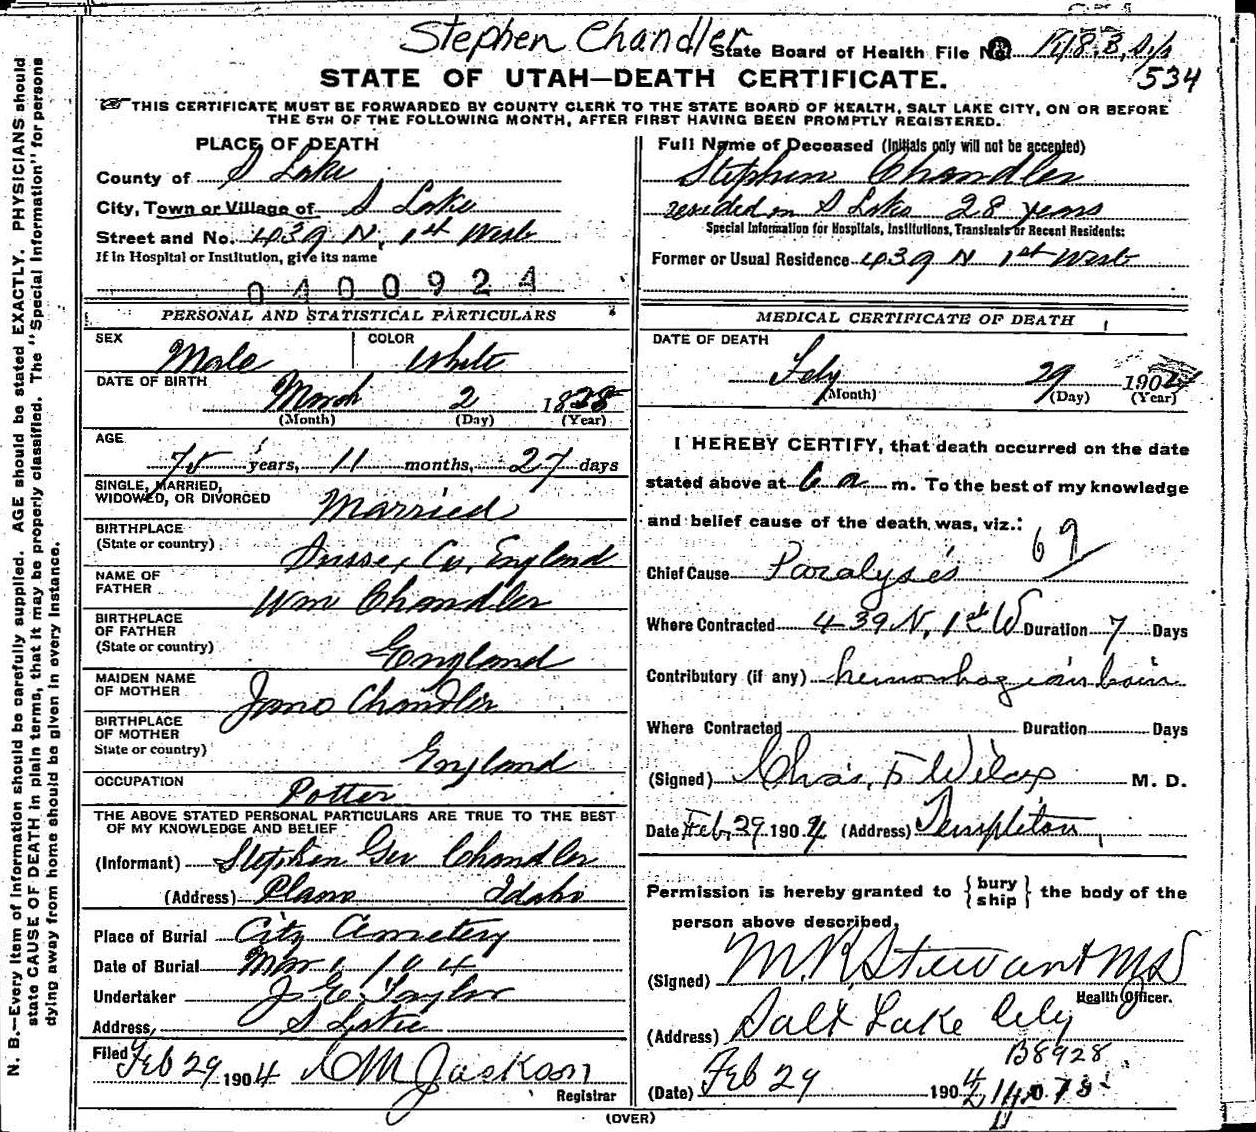 Stephen Chandler
State Board of Health File No.
534
STATE OF UTAH—DEATH CERTIFICATE.
THIS CERTIFICATE MUST BE FORWARDED BY COUNTY CLERK TO THE STATE BOARD OF HEALTH, SALT LAKE CITY, ON OR BEFORE
THE 5TH OF THE FOLLOWING MONTH, AFTER FIRST HAVING BEEN PROMPTLY REGISTERED.
N. B.—Every item of information should be carefully supplied. AGE should be stated EXACTLY. PHYSICIANS should
state CAUSE OF DEATH in plain terms, that it may be properly classified. The "Special Information" for persons
dying away from home should be given in every instance.
PLACE OF DEATH
County of S Lake
City, Town or Village of S Lake
Street and No. 439 N, 1st West
If in Hospital or Institution, give its name
0400924
PERSONAL AND STATISTICAL PARTICULARS
SEX
Male
COLOR
White
DATE OF BIRTH
March 2 1828
(Month) (Day) (Year)
AGE
75 years, 11 months, 27 days
SINGLE, MARRIED,
WIDOWED, OR DIVORCED
Married
BIRTHPLACE
(State or country)
Co, England
NAME OF
FATHER
Wm Chandler
BIRTHPLACE
OF FATHER
(State or country)
England
MAIDEN NAME
OF MOTHER
Jane Chandler
BIRTHPLACE
OF MOTHER
State or country)
England
OCCUPATION
Potter
THE ABOVE STATED PERSONAL PARTICULARS ARE TRUE TO THE BEST
OF MY KNOWLEDGE AND BELIEF
(Informant) Stephen Geo Chandler
(Address) Plano Idaho
Place of Burial City Cemetery
Date of Burial Mar 1 104
Undertaker J E Taylor
Address, S Lake
Filed Feb 29 1904
Jackson
Registrar
Full Name of Deceased (Initials only will not be accepted)
Stephen Chandler
resided in S Lake 28 years
Special Information for Hospitals, Institutions, Transients or Recent Residents:
Former or Usual Residence 439 N 1st West
MEDICAL CERTIFICATE OF DEATH
DATE OF DEATH
Feby 29 1904
(Month) (Day) (Year)
I HEREBY CERTIFY, that death occurred on the date
stated above at 6 a m. To the best of my knowledge
and belief cause of the death was, viz.:
69
Chief Cause Paralysis
Where Contracted 439 N, 1st W Duration 7 Days
Contributory (if any)
Where Contracted Duration Days
(Signed) Chas. F Wilcox M. D.
Date Feb. 29 1904 (Address) Templeton,
Permission is hereby granted to {bury ship} the body of the
person above described,
(Signed) M. R. Stewart MD
Health Officer.
(Address) Salt Lake City
B8928
(Date) Feb 29 1904
(OVER)